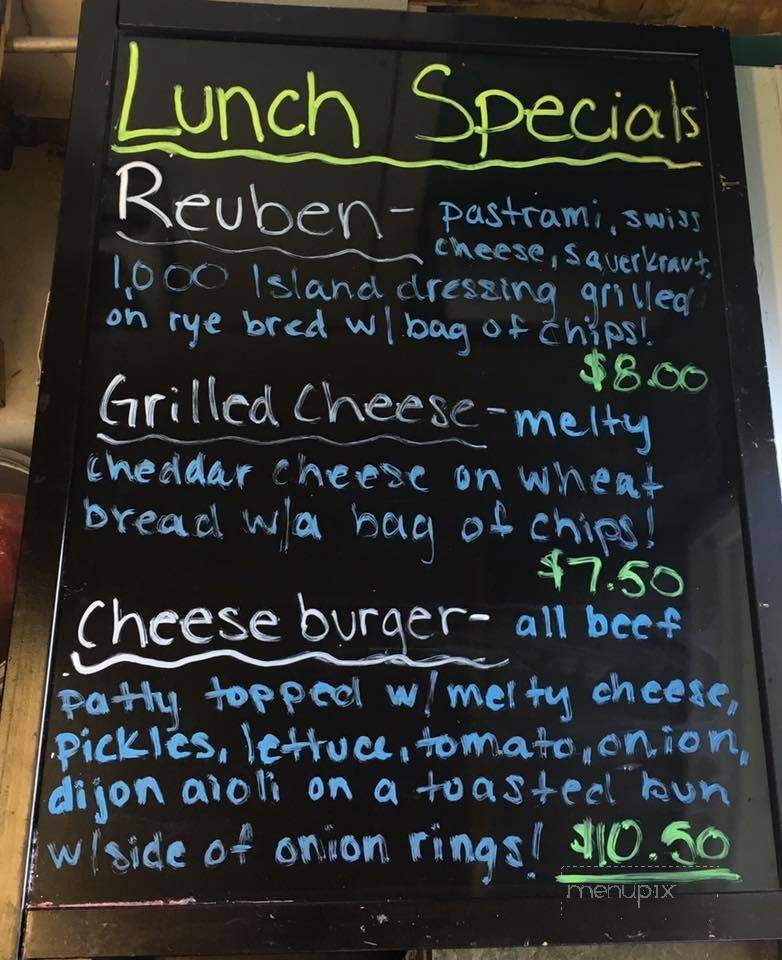 Lunch Specials
Reuben- pastrami, swiss
cheese, sauerkraut,
1,000 Island dressing grilled
on rye bred w/ bag of chips!
$8.00
Grilled Cheese- melty
cheddar cheese on wheat
bread w/a bag of chips!
$7.50
Cheese burger- all beef
patty topped w/ melty cheese,
pickles, lettuce, tomato, onion,
dijon aioli on a toasted bun
w/side of onion rings! $10.50
menupix